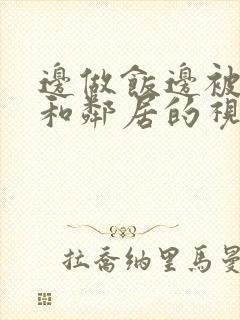 邊做飯邊被
和鄰居的視
拉喬納里馬曼